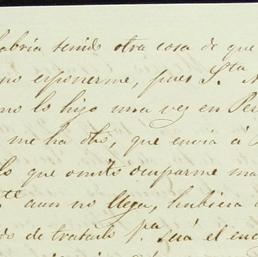 habria tenido otra cosa de que
no esponerme, pues S.ta
no lo hizo una vez en
me ha dho, que envia á
lo que omito ocuparme ma
te aun no llega, hubiera
do de tratado p.a será el